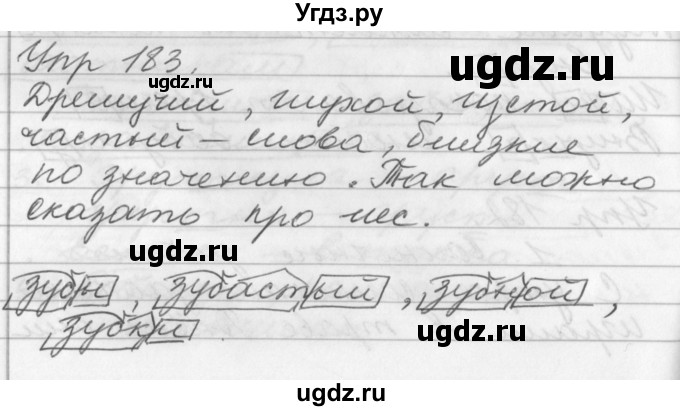 Угдз.ру
Упр 183.
Дремучий, глухой, густой,
частый – слова, близкие
по значению. Так можно
сказать про лес.
зубы, зубастый, зубной,
зубки
ugdz.ru
ugdz.ru
ugdz.ru
ugdz.ru
ugdz.ru
ugdz.ru
ugdz.ru
ugdz.ru